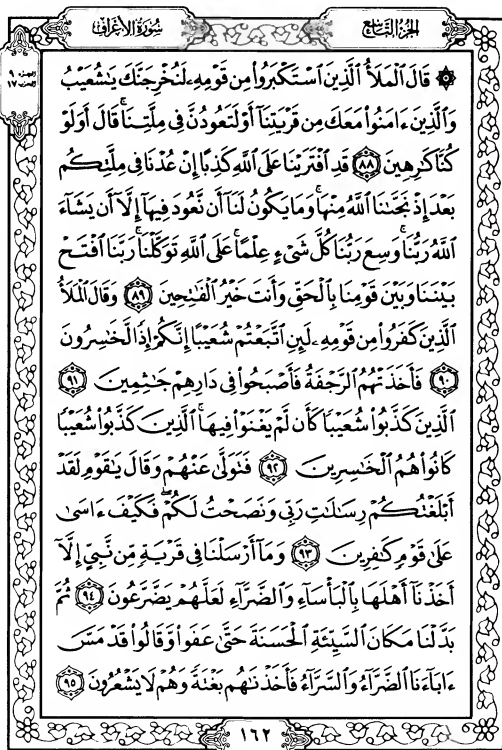 الجزء التاسع
سورة الأعراف
الجزء ٩
الحزب ١٧
۞ قَالَ ٱلْمَلَأُ ٱلَّذِينَ ٱسْتَكْبَرُوا۟ مِن قَوْمِهِۦ لَنُخْرِجَنَّكَ يَٰشُعَيْبُ
وَٱلَّذِينَ ءَامَنُوا۟ مَعَكَ مِن قَرْيَتِنَآ أَوْ لَتَعُودُنَّ فِى مِلَّتِنَا ۚ قَالَ أَوَلَوْ
كُنَّا كَٰرِهِينَ ٨٨ قَدِ ٱفْتَرَيْنَا عَلَى ٱللَّهِ كَذِبًا إِنْ عُدْنَا فِى مِلَّتِكُم
بَعْدَ إِذْ نَجَّىٰنَا ٱللَّهُ مِنْهَا ۚ وَمَا يَكُونُ لَنَآ أَن نَّعُودَ فِيهَآ إِلَّآ أَن يَشَآءَ
ٱللَّهُ رَبُّنَا ۚ وَسِعَ رَبُّنَا كُلَّ شَىْءٍ عِلْمًا ۚ عَلَى ٱللَّهِ تَوَكَّلْنَا ۚ رَبَّنَا ٱفْتَحْ
بَيْنَنَا وَبَيْنَ قَوْمِنَا بِٱلْحَقِّ وَأَنتَ خَيْرُ ٱلْفَٰتِحِينَ ٨٩ وَقَالَ ٱلْمَلَأُ
ٱلَّذِينَ كَفَرُوا۟ مِن قَوْمِهِۦ لَئِنِ ٱتَّبَعْتُمْ شُعَيْبًا إِنَّكُمْ إِذًا لَّخَٰسِرُونَ
٩٠ فَأَخَذَتْهُمُ ٱلرَّجْفَةُ فَأَصْبَحُوا۟ فِى دَارِهِمْ جَٰثِمِينَ ٩١
ٱلَّذِينَ كَذَّبُوا۟ شُعَيْبًا كَأَن لَّمْ يَغْنَوْا۟ فِيهَا ۚ ٱلَّذِينَ كَذَّبُوا۟ شُعَيْبًا
كَانُوا۟ هُمُ ٱلْخَٰسِرِينَ ٩٢ فَتَوَلَّىٰ عَنْهُمْ وَقَالَ يَٰقَوْمِ لَقَدْ
أَبْلَغْتُكُمْ رِسَٰلَٰتِ رَبِّى وَنَصَحْتُ لَكُمْ ۖ فَكَيْفَ ءَاسَىٰ
عَلَىٰ قَوْمٍ كَٰفِرِينَ ٩٣ وَمَآ أَرْسَلْنَا فِى قَرْيَةٍ مِّن نَّبِىٍّ إِلَّآ
أَخَذْنَآ أَهْلَهَا بِٱلْبَأْسَآءِ وَٱلضَّرَّآءِ لَعَلَّهُمْ يَضَّرَّعُونَ ٩٤ ثُمَّ
بَدَّلْنَا مَكَانَ ٱلسَّيِّئَةِ ٱلْحَسَنَةَ حَتَّىٰ عَفَوا۟ وَّقَالُوا۟ قَدْ مَسَّ
ءَابَآءَنَا ٱلضَّرَّآءُ وَٱلسَّرَّآءُ فَأَخَذْنَٰهُم بَغْتَةً وَهُمْ لَا يَشْعُرُونَ ٩٥
١٦٢